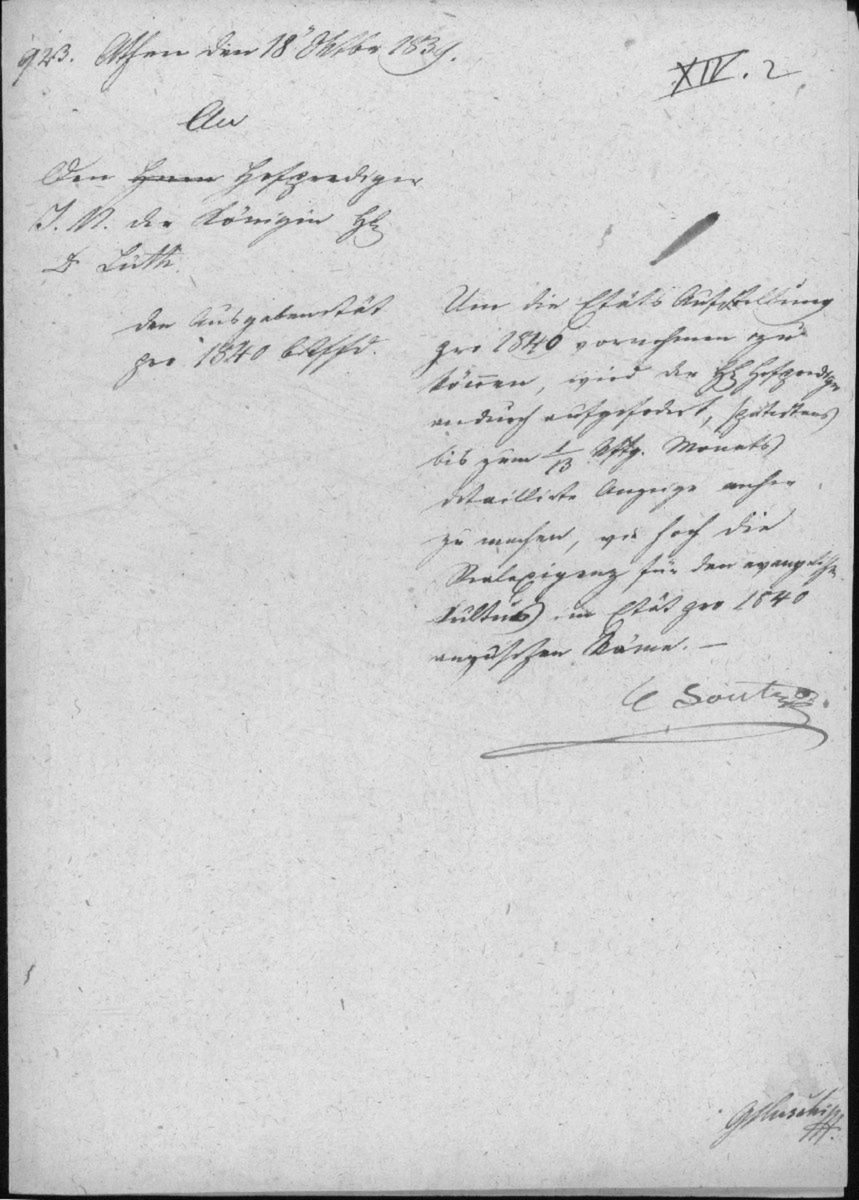 923. Athen den 18 Oktbr 1839.
XIV. 2
An
Den Herrn Hofprediger
I. M. der Königin HE
D. Lüth.
den Ausgabenetät
pro 1840 betffd.
Um die Etäts Aufstellung
pro 1840 vornehmen zu
können, wird der HE Hofprediger
andurch aufgefodert, spätestens
bis zum 1/13 Monats
detaillirte Anzeige anher
zu machen, wie hoch die
Realexigenz für den evangelischen
Kultus im Etät pro 1840
anzusetzen käme. —
E Soutzo.